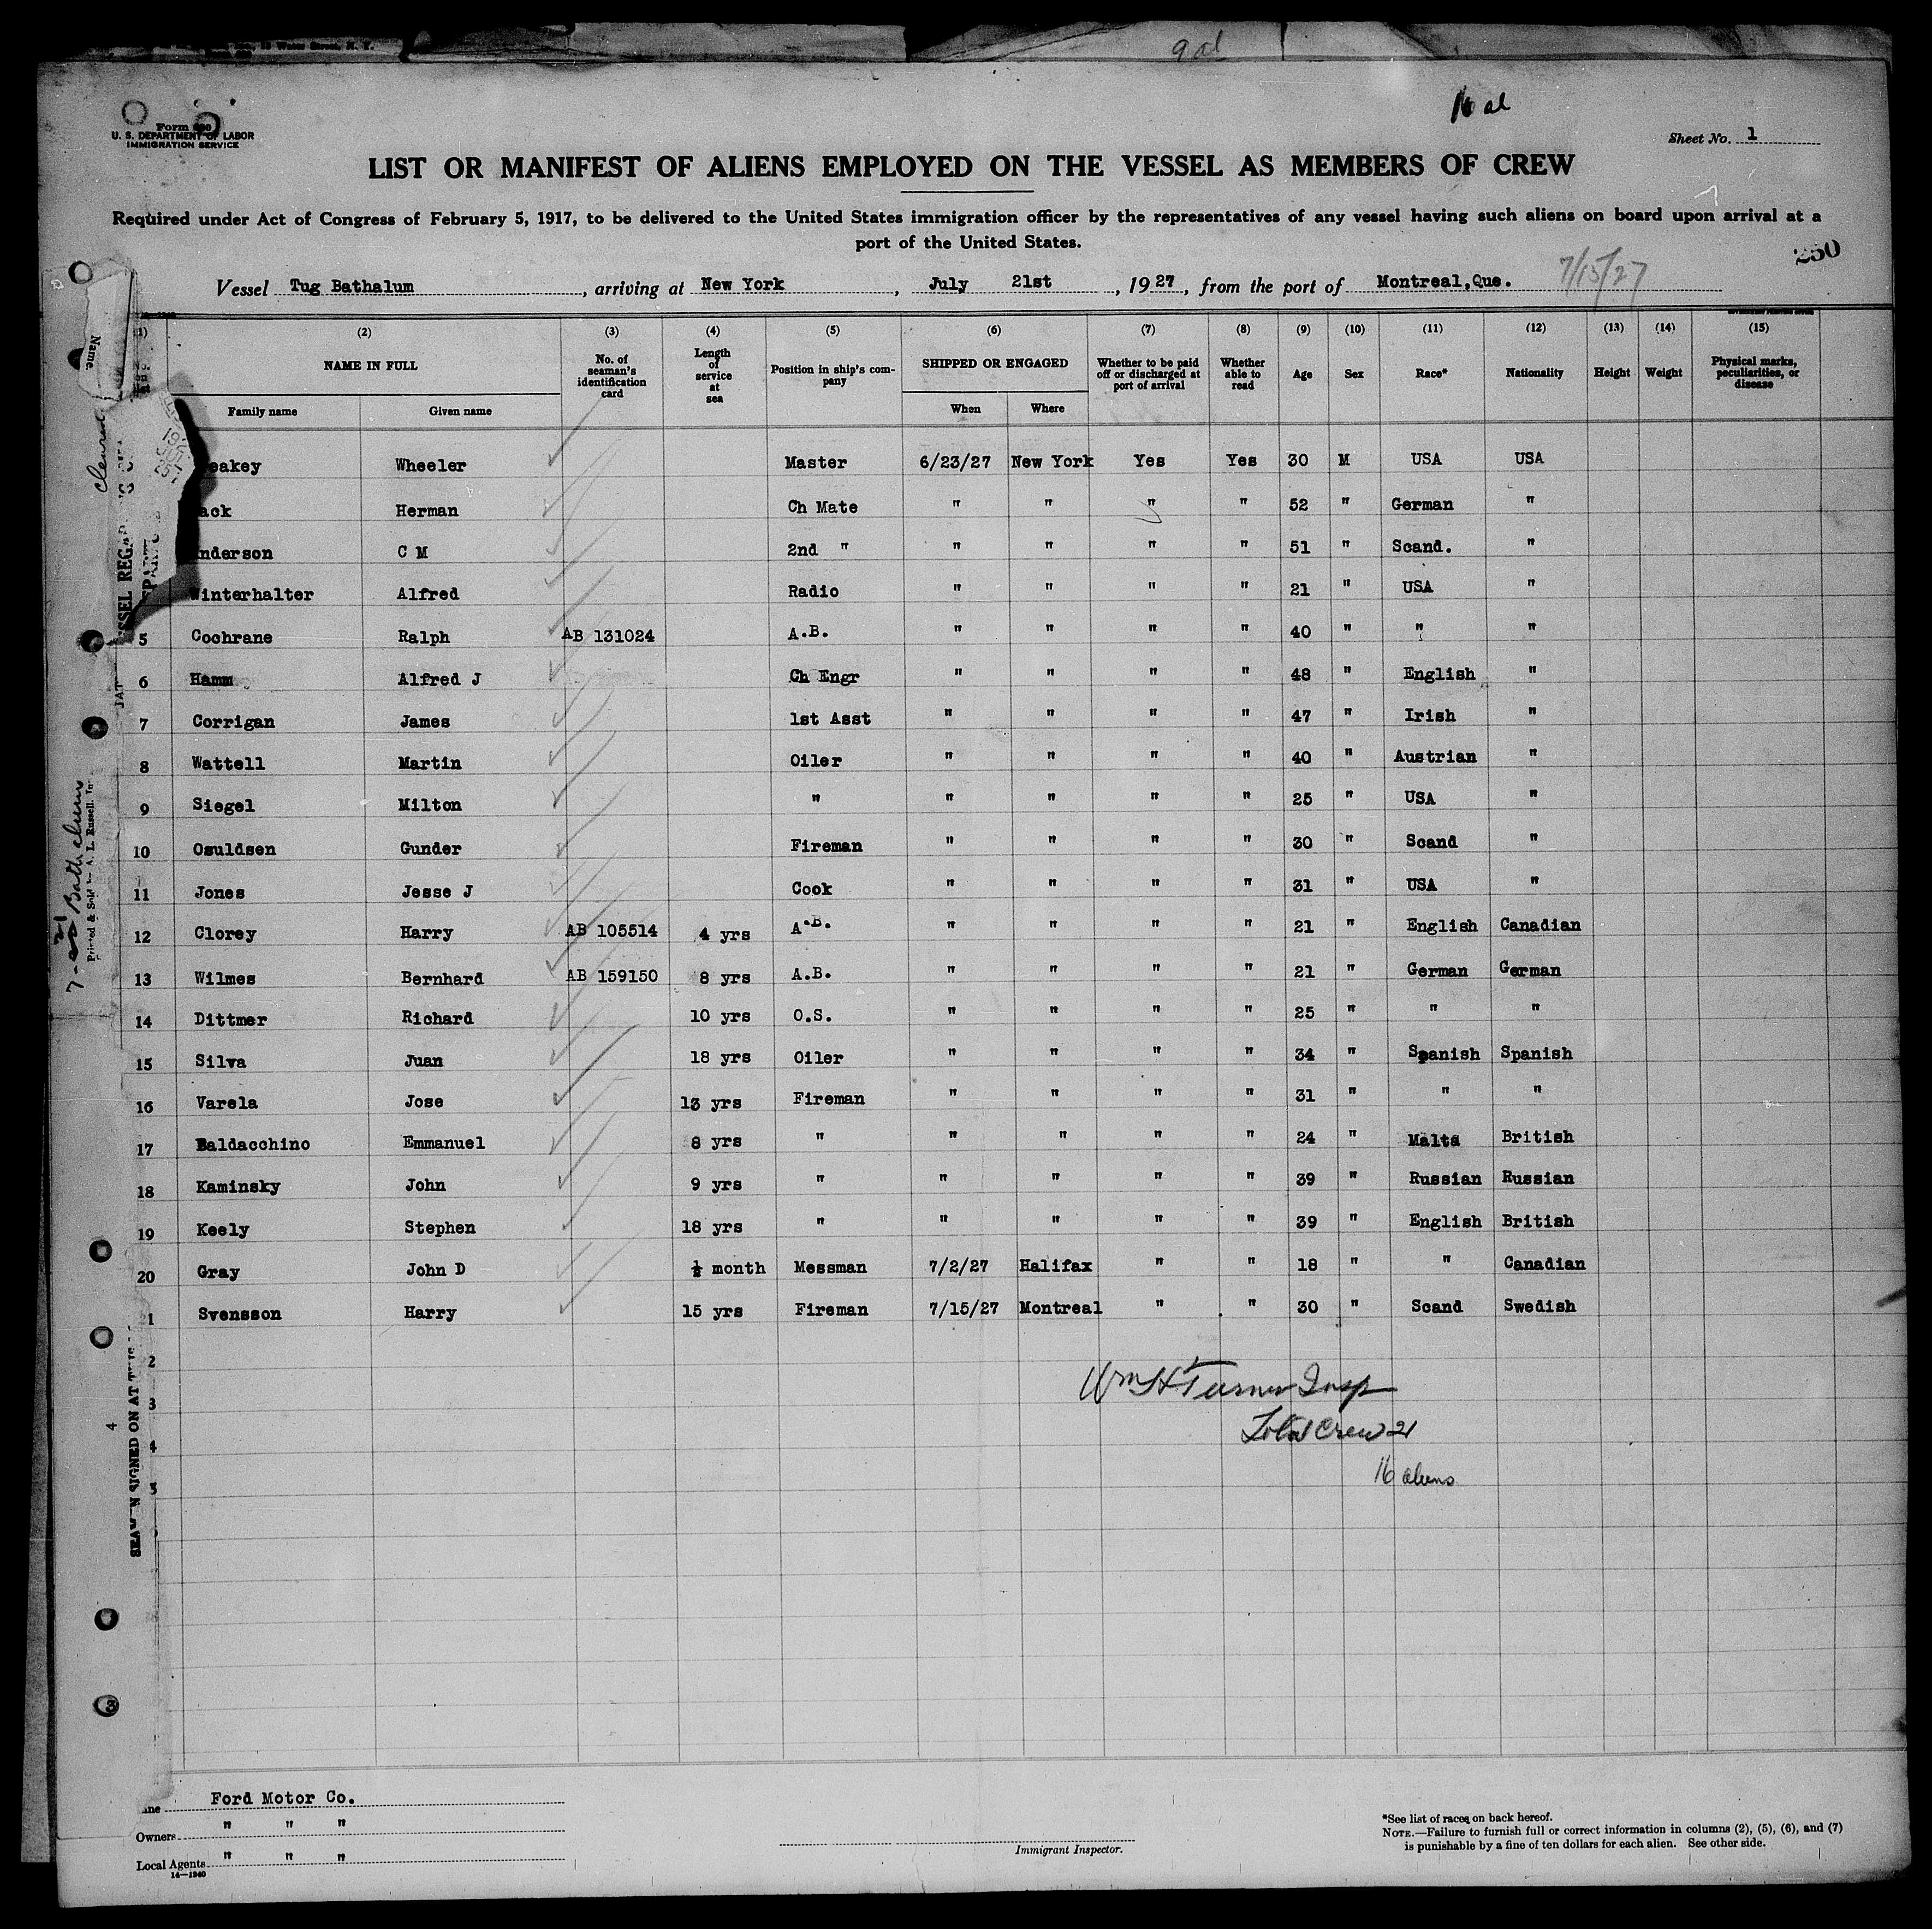 9 al
16 al
Form 680
U. S. DEPARTMENT OF LABOR
IMMIGRATION SERVICE
Sheet No. 1
LIST OR MANIFEST OF ALIENS EMPLOYED ON THE VESSEL AS MEMBERS OF CREW
Required under Act of Congress of February 5, 1917, to be delivered to the United States immigration officer by the representatives of any vessel having such aliens on board upon arrival at a
port of the United States.
250
7/15/27
Vessel Tug Bathalum, arriving at New York, July 21st, 1927, from the port of Montreal,Que.
(1) (2) (3) (4) (5) (6) (7) (8) (9) (10) (11) (12) (13) (14) (15)
NAME IN FULL No. of seaman's identification card Length of service at sea Position in ship's company SHIPPED OR ENGAGED Whether to be paid off or discharged at port of arrival Whether able to read Age Sex Race* Nationality Height Weight Physical marks, peculiarities, or disease
Family name Given name When Where
eakey Wheeler Master 6/23/27 New York Yes Yes 30 M USA USA
ack Herman Ch Mate " " " " 52 " German "
nderson C M 2nd " " " " " 51 " Scand. "
Winterhalter Alfred Radio " " " " 21 " USA "
5 Cochrane Ralph AB 131024 A.B. " " " " 40 " " "
6 Hamm Alfred J Ch Engr " " " " 48 " English "
7 Corrigan James 1st Asst " " " " 47 " Irish "
8 Wattell Martin Oiler " " " " 40 " Austrian "
9 Siegel Milton " " " " " 25 " USA "
10 Osuldsen Gunder Fireman " " " " 30 " Scand "
11 Jones Jesse J Cook " " " " 31 " USA "
12 Clorey Harry AB 105514 4 yrs A.B. " " " " 21 " English Canadian
13 Wilmes Bernhard AB 159150 8 yrs A.B. " " " " 21 " German German
14 Dittmer Richard 10 yrs O.S. " " " " 25 " " "
15 Silva Juan 18 yrs Oiler " " " " 34 " Spanish Spanish
16 Varela Jose 13 yrs Fireman " " " " 31 " " "
17 Baldacchino Emmanuel 8 yrs " " " " " 24 " Malta British
18 Kaminsky John 9 yrs " " " " " 39 " Russian Russian
19 Keely Stephen 18 yrs " " " " " 39 " English British
20 Gray John D ½ month Messman 7/2/27 Halifax " " 18 " " Canadian
1 Svensson Harry 15 yrs Fireman 7/15/27 Montreal " " 30 " Scand Swedish
2
3
4
5
Wm H Turner Insp
Total Crew 21
16 aliens
Name
Cleared
Bathalum
Printed & Sold by A. L. Russell, In
SIGNED ON AT
4
3
ine Ford Motor Co.
Owners " " "
Local Agents " " "
14—1240
Immigrant Inspector.
*See list of races on back hereof.
NOTE.—Failure to furnish full or correct information in columns (2), (5), (6), and (7)
is punishable by a fine of ten dollars for each alien. See other side.